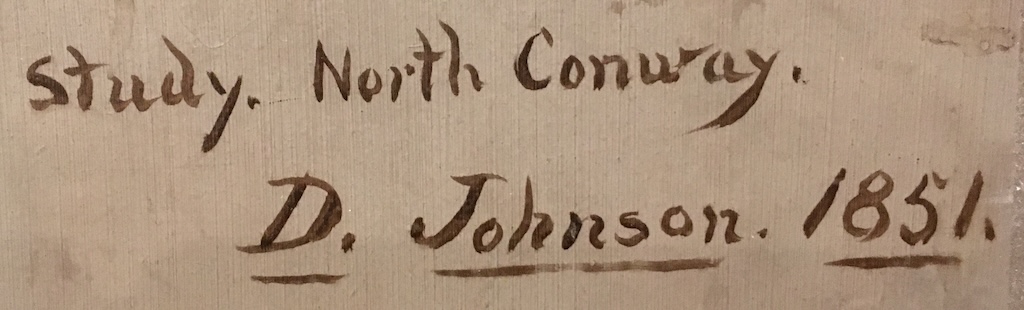 Study. North Conway.
D. Johnson. 1851.